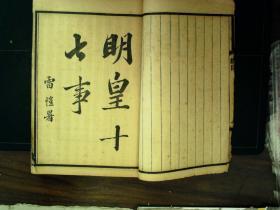 明皇十
七事
雷愷署